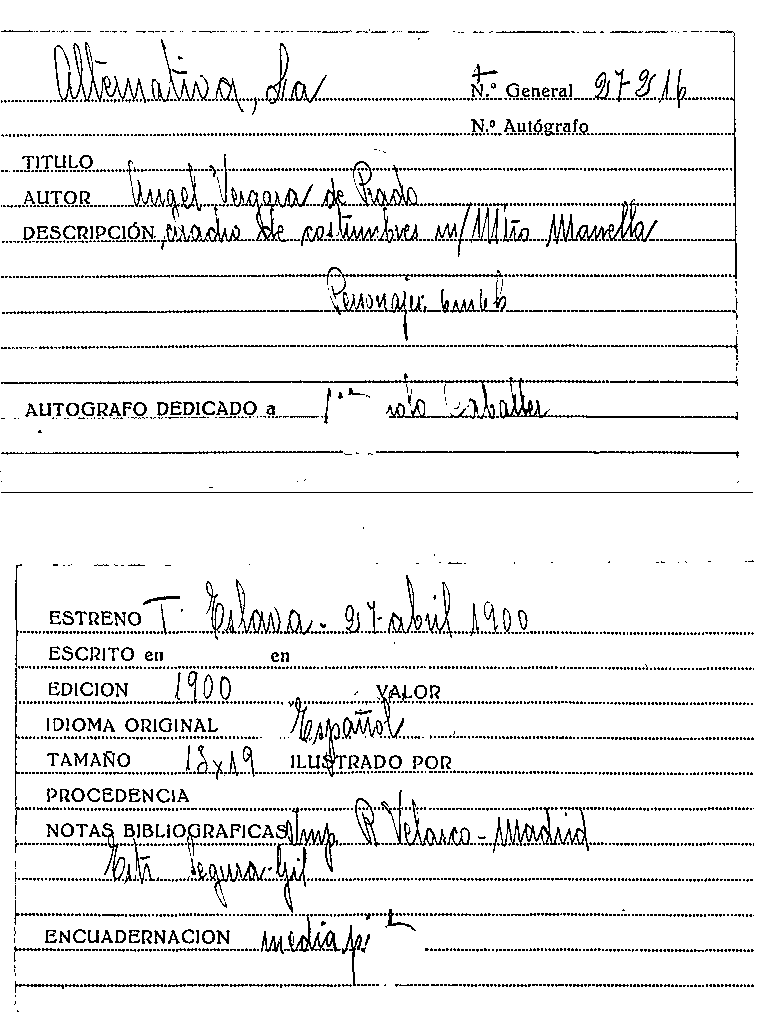 Alternativa, La
N.º General 27-216
N.º Autógrafo
TITULO
AUTOR Angel Vergara de Prado
DESCRIPCIÓN, cuadro de costumbres m/ Mtro Manella
Personajes
AUTOGRAFO DEDICADO a Caballer
ESTRENO T. Eslava - 27 abril 1900
ESCRITO en en
EDICION 1900 VALOR
IDIOMA ORIGINAL Español
TAMAÑO 13x19 ILUSTRADO POR
PROCEDENCIA
NOTAS BIBLIOGRAFICAS Imp. R Velasco - Madrid
Estr Segura-Gil
ENCUADERNACION media